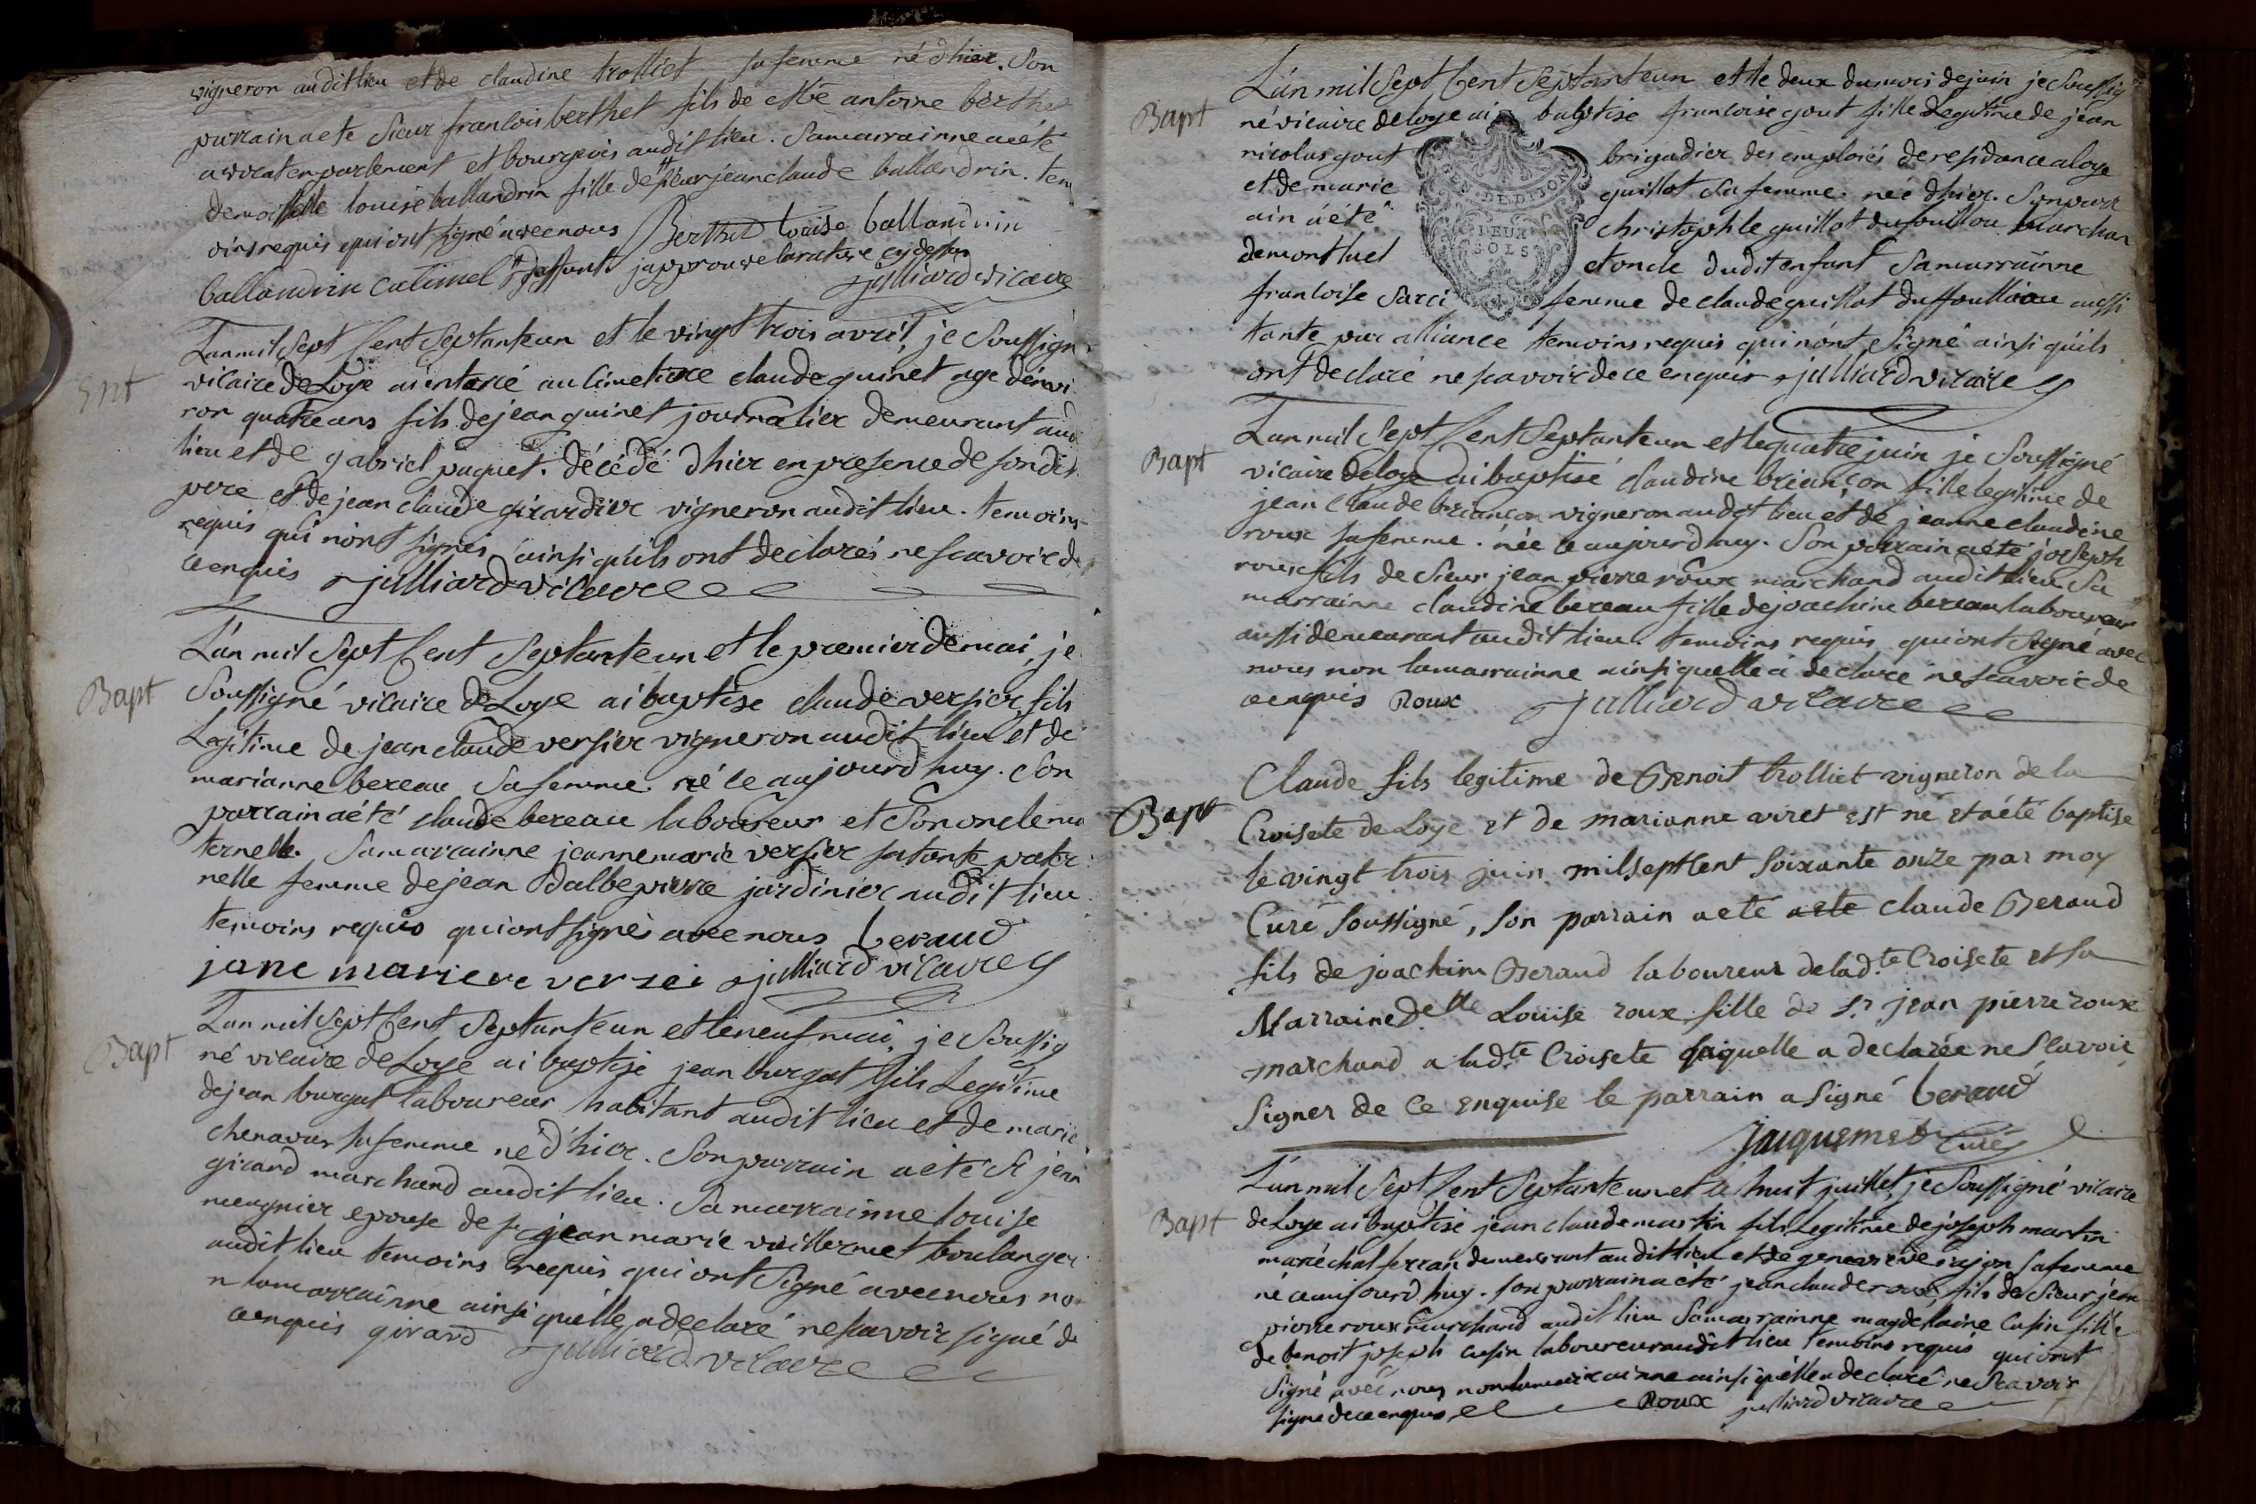 vigneron audit lieu et de claudine trolliet sa femme né d'hier. Son
parrain a ete sieur francois berthet fils de Me antoine berthet
avocat en parlement et bourgeois audit lieu. Sa marrainne a été
demoiselle louise ballandrin fille de sieur jean claude ballandrin. tem
oins requis qui ont signé avec nous Berthet louise ballandrin
ballandrin catimel j'approuve la rature cy dessus
julliard vicaire
Ent
L'an mil sept cent septante un et le vingt trois avril, je soussign
vicaire de Loye ai enterré au cimetiere claude guinet age d'envi
ron quatre ans fils de jean guinet journalier demeurant aud
lieu et de gabriel paquet. décédé d'hier en presence de son dit
pere et de jean claude girardier vigneron audit lieu. temoins
requis qui n'ont signés ainsi qu'ils ont declarés ne scavoir de
ce enquis julliard vicaire
Bapt
L'an mil sept cent septante un et le premier de mai, je
soussigné vicaire de Loye ai baptise claude versier fils
Legitime de jean claude versier vigneron audit lieu et de
marianne bereau sa femme. né ce aujourd'huy. Son
parrain a été claude bereau laboureur et son oncle ma
ternelle. Sa marrainne jeanne marie versier sa tante pater
nelle femme de jean dalbepierre jardinier audit lieu
temoins requis qui ont signés avec nous beraud
jane mariere versei julliard vicaire
Bapt
L'an mil sept cent septante un et le neuf mai, je soussig
né vicaire de Loye ai baptisé jean burgat fils Legitime
de jean burgat laboureur habitant audit lieu et de marie
chenavas sa femme né d'hier. Son parrain a eté Sr jean
girard marchand audit lieu. Sa marrainne louise
meugnier epouse de sr jean marie vuillermet boulanger
audit lieu temoins requis qui ont signé avec nous no
n la marrainne ainsi qu'elle a declaré ne scavoir signé de
ce enquis girard julliard vicaire
Bapt
L'an mil sept cent septante un et le deux du mois de juin je soussig
né vicaire de loye ai baptise francoise gout fille Legitime de jean
nicolas gout brigadier des emploiés de residance a loye
et de marie guillot sa femme. née d'hier. Son parr
ain a été christophle guillot du fouillou marchan
de montluel et oncle dudit enfant Sa marrainne
francoise sarci femme de claude guillot du ffoulliou aussi
tante par alliance temoins requis qui n'ont signé ainsi qu'ils
ont declaré ne scavoir de ce enquis julliard vicaire
GEN. DE DIJON
DEUX
SOLS
Bapt
L'an mil sept cent septante un et le quatre juin je soussigné
vicaire de loye ai baptisé claudine briançon fille legitime de
jean claude briancon vigneron audit lieu et de jeanne claudine
roux sa femme. née ce aujourd'huy. Son parrain a été joseph
roux fils de sieur jean pierre roux marchand audit lieu Sa
marrainne claudine bereau fille de joachine bereau laboureur
aussi demeurant audit lieu. temoins requis qui ont signé avec
nous non la marrainne ainsi quelle a declaré ne scavoir de
ce enquis Roux julliard vicaire
Bapt
Claude fils legitime de Benoit trolliet vigneron de la
Croisete de Loye et de marianne viret est né et a été baptise
le vingt trois juin mil sept cent soixante onze par moy
Curé soussigné, son parrain a eté a ete claude Beraud
fils de joachim Beraud laboureur de lad.te Croisete et sa
Marraine delle Louise roux fille de Sr jean pierre roux
marchand a lad.te Croisete laquelle a declarée ne scavoir
signer de ce enquise le parrain a signé beraud
jaquemet curé
Bapt
L'an mil sept cent septante un et le huit juillet je soussigné vicaire
de Loye ai baptisé jean claude martin fils Legitime de joseph martin
maréchal ferran demeurant audit lieu et de genevieve sa femme
né ce aujourd'huy. son parrain a été jean claude roux fils de sieur jean
pierre roux marchand audit lieu Sa marrainne magdelaine cusin fille
de benoit joseph cusin laboureur audit lieu temoins requis qui ont
signé avec nous non la marrainne ainsi qu'elle a declaré ne scavoir
signé de ce enquis Roux julliard vicaire